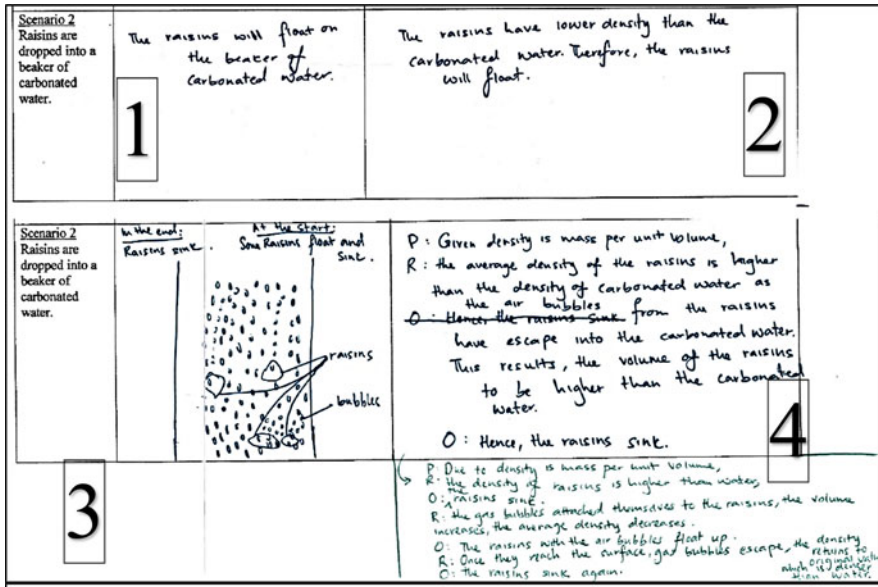 Scenario 2
Raisins are
dropped into a
beaker of
carbonated
water.
The raisins will float on
the beaker of
carbonated water.
1
The raisins have lower density than the
carbonated water. Therefore, the raisins
will float.
2
Scenario 2
Raisins are
dropped into a
beaker of
carbonated
water.
In the end:
Raisins sink.
At the start:
Some Raisins float and
sink.
raisins
bubbles
3
P: Given density is mass per unit volume,
R: the average density of the raisins is higher
than the density of carbonated water as
the air bubbles
O: Hence the raisins sink from the raisins
have escape into the carbonated water.
This results, the volume of the raisins
to be higher than the carbonated
water.
O: Hence, the raisins sink.
4
P: Due to density is mass per unit volume,
R: the density of raisins is higher than water,
O: the raisins sink.
R: the gas bubbles attached themselves to the raisins, the volume
increases, the average density decreases.
O: The raisins with the air bubbles float up.
R: Once they reach the surface, gas bubbles escape, the density
returns to original value
which is denser
than water.
O: The raisins sink again.